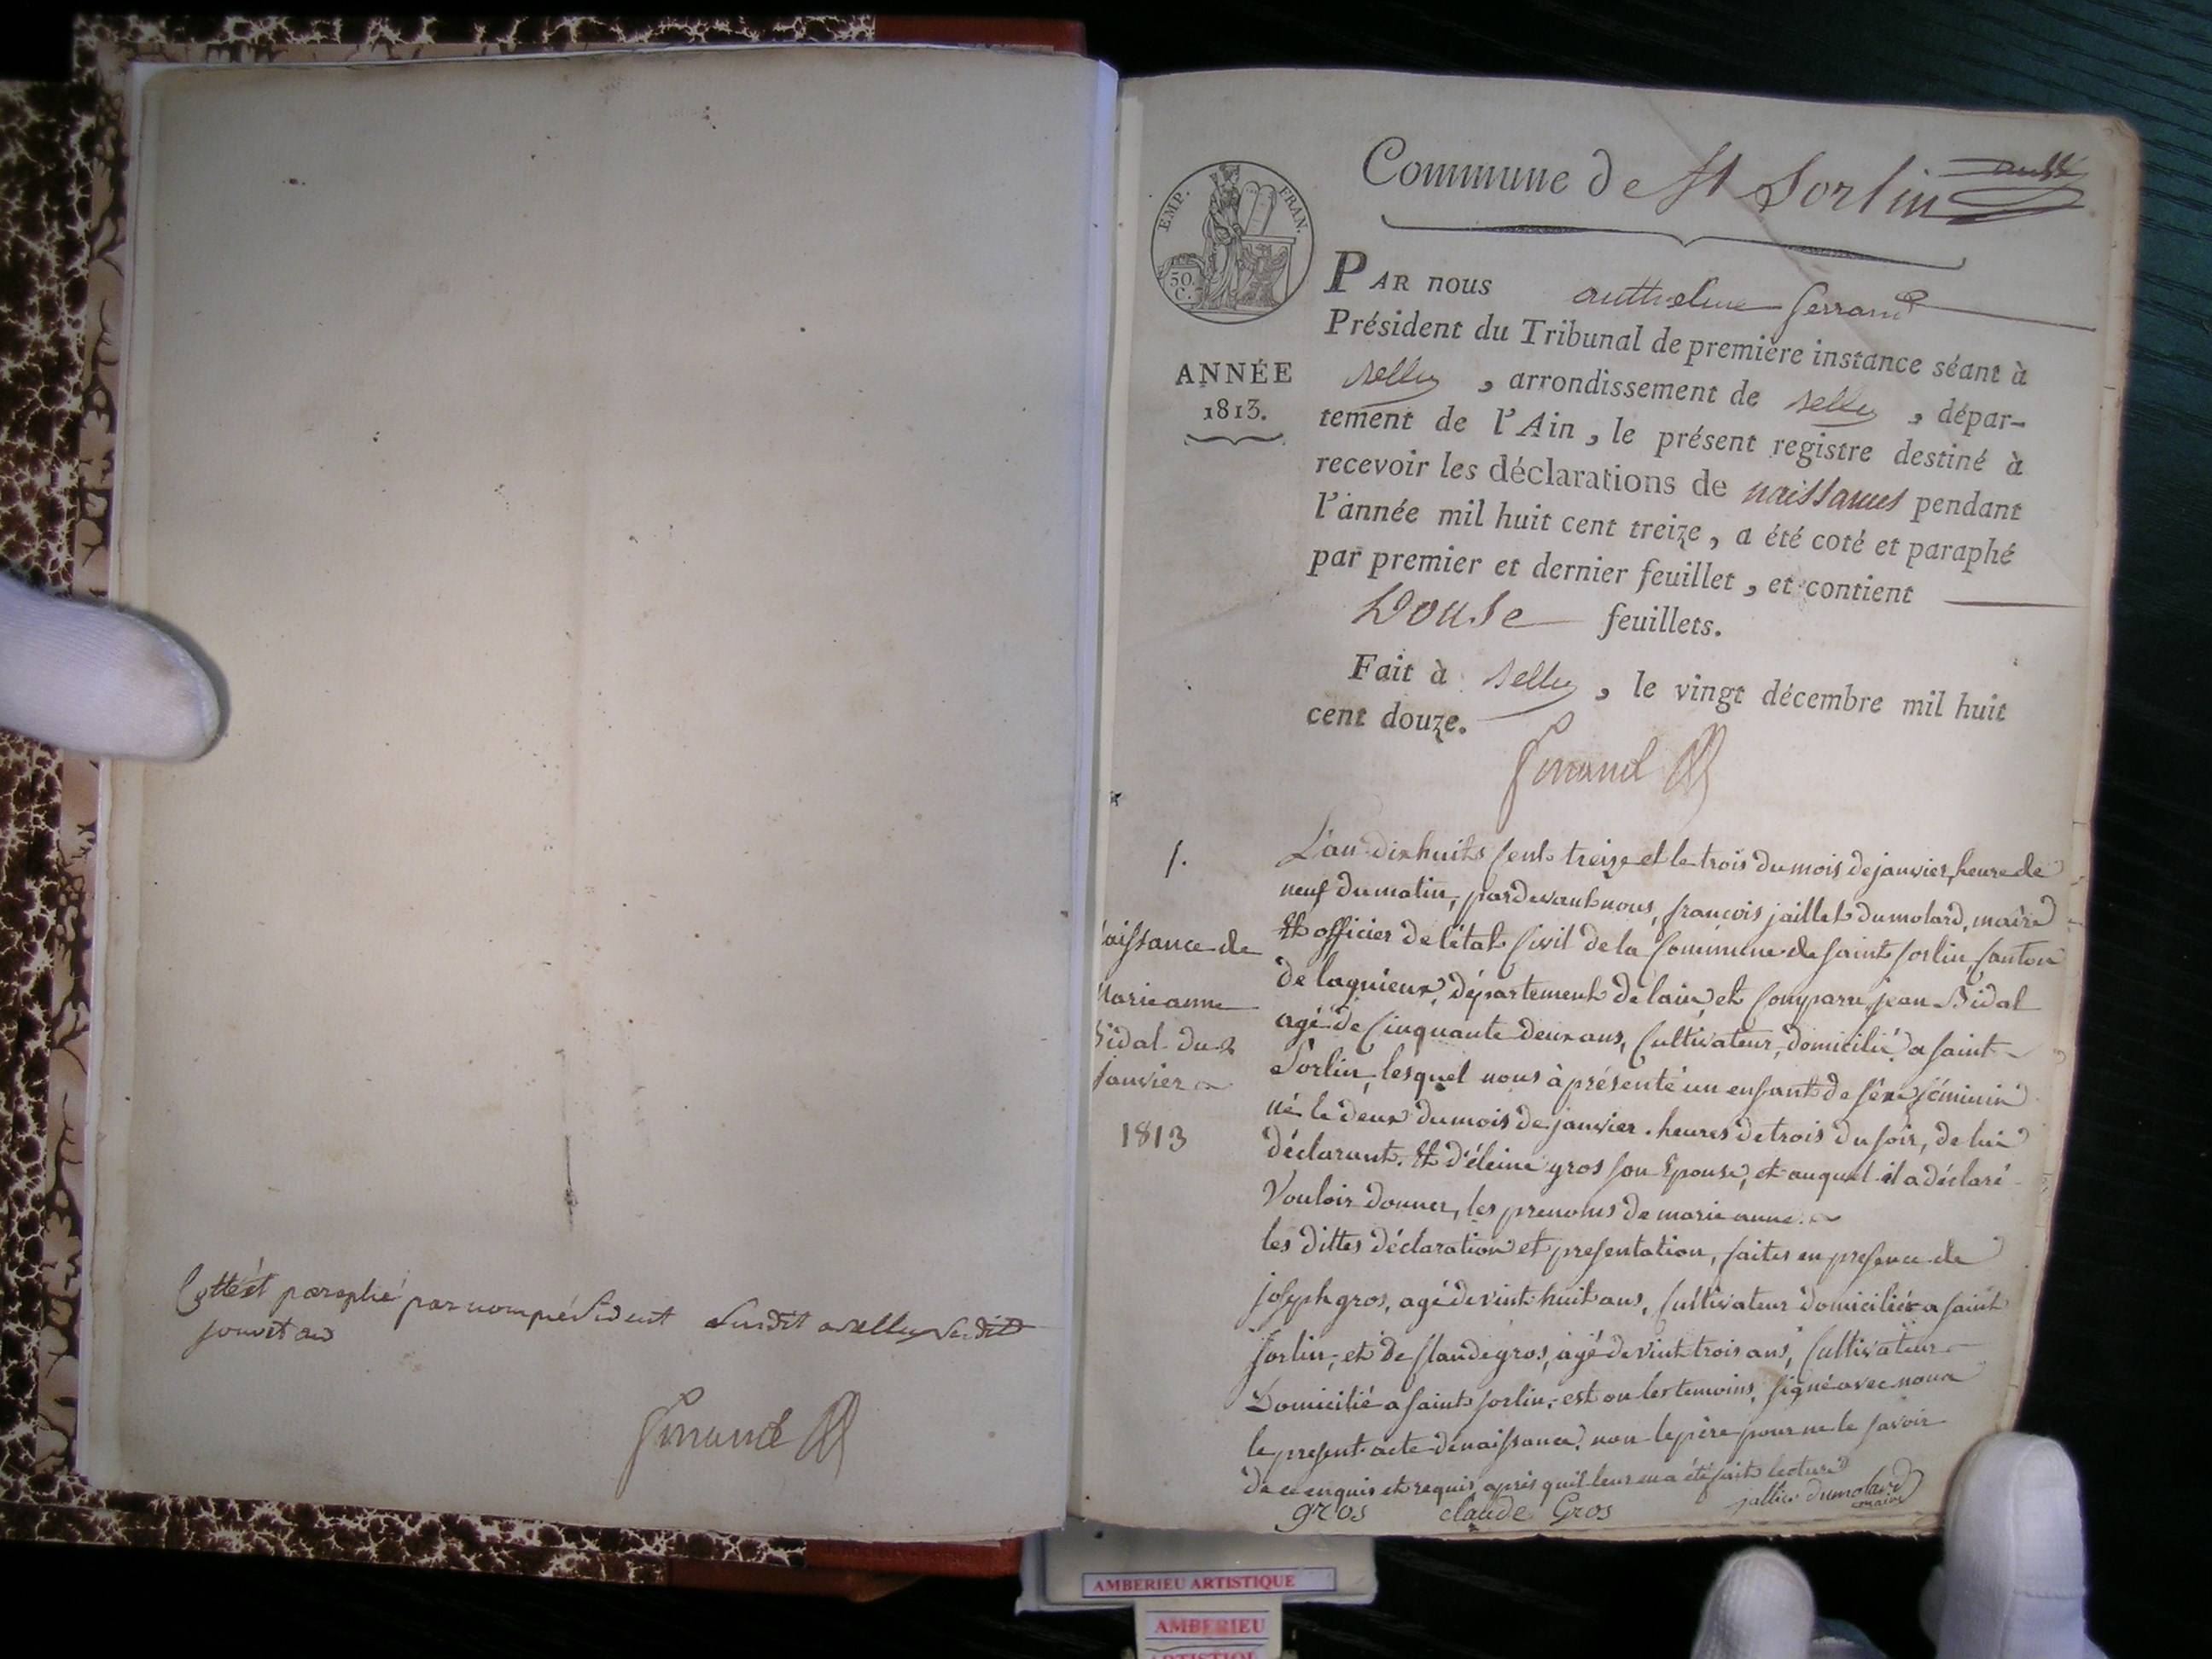 Cotté et paraphé par nous président susdit a Belley susdit
jour et an
Ferrand
Commune de St Sorlin
EMP. FRAN.
50.
C.
ANNÉE
1813.
PAR nous anthelme ferrand
Président du Tribunal de première instance séant à
Belley, arrondissement de Belley, dépar-
tement de l'Ain, le présent registre destiné à
recevoir les déclarations de naissances pendant
l'année mil huit cent treize, a été coté et paraphé
par premier et dernier feuillet, et contient
Douse feuillets.
Fait à Belley, le vingt décembre mil huit
cent douze.
Ferrand
1.
aissance de
Marie anne
Bidal du 2
Janvier
1813
L'an dix huits cent treize et le trois du mois de janvier, heure de
neuf du matin, pardevant nous, françois jaillet dumolard, maire
Et officier de l'état Civil de la Commune de saint sorlin, Canton
de lagnieux, département de lain, et Comparu jean Bidal
agé de Cinquante deux ans, Cultivateur, domicilié a saint
Sorlin, lesquel nous à présenté un enfant de sêxe féminin
né le deux du mois de janvier. heures de trois du soir, de lui
déclarant. Et d'éleine gros son Epouse, et auquel il a déclaré
Vouloir donner, les prenoms de marie anne.
les dittes déclaration et presentation, faites en presence de
joseph gros, agé de vint huit ans, Cultivateur domiciliée a saint
sorlin, et de Claude gros, agé de vint trois ans, Cultivateur
Domicilié a saint sorlin, est on les temoins, signé avec nous
le present acte de naissance, non le père pour ne le savoir
de ce enquis et requis après quil leur en a été fait lecture
gros claude Gros jallier dumolard
maire
AMBERIEU ARTISTIQUE
AMBERIEU
ARTISTIQUE